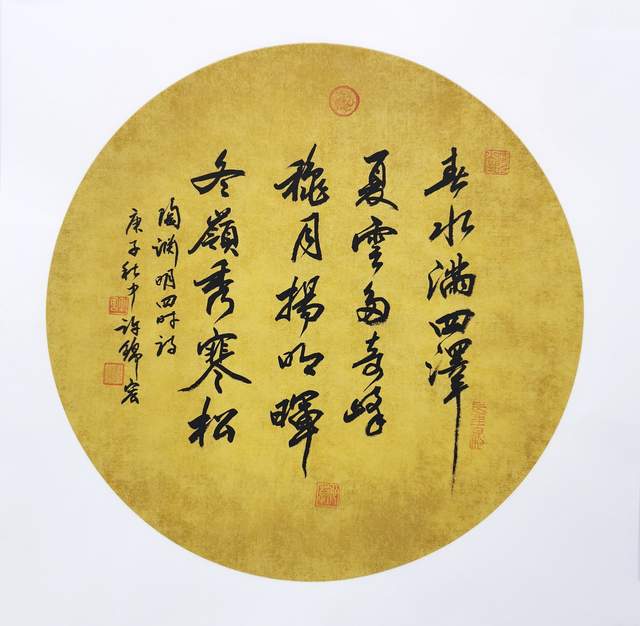 春水滿四澤
夏雲多奇峰
穐月揚明暉
冬嶺秀寒松
陶淵明四時詩
庚子秋中許錦